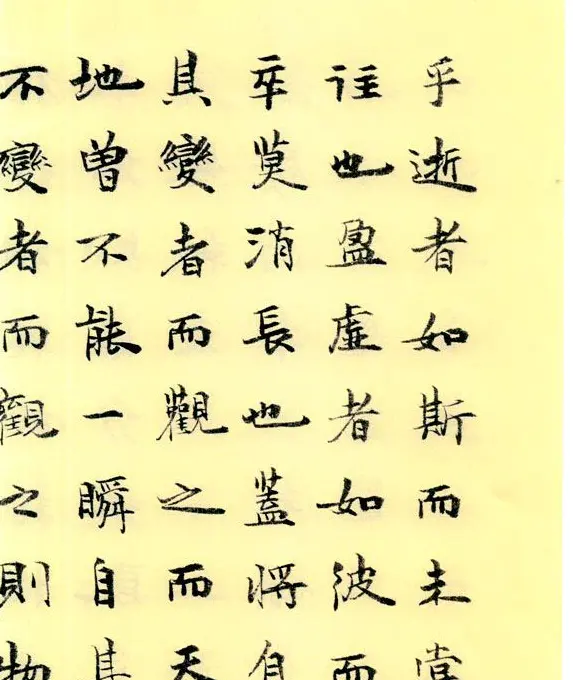 乎逝者如斯而未嘗
往也盈虛者如彼而
卒莫消長也蓋將自
其變者而觀之而天
地曾不能一瞬自其
不變者而觀之則物